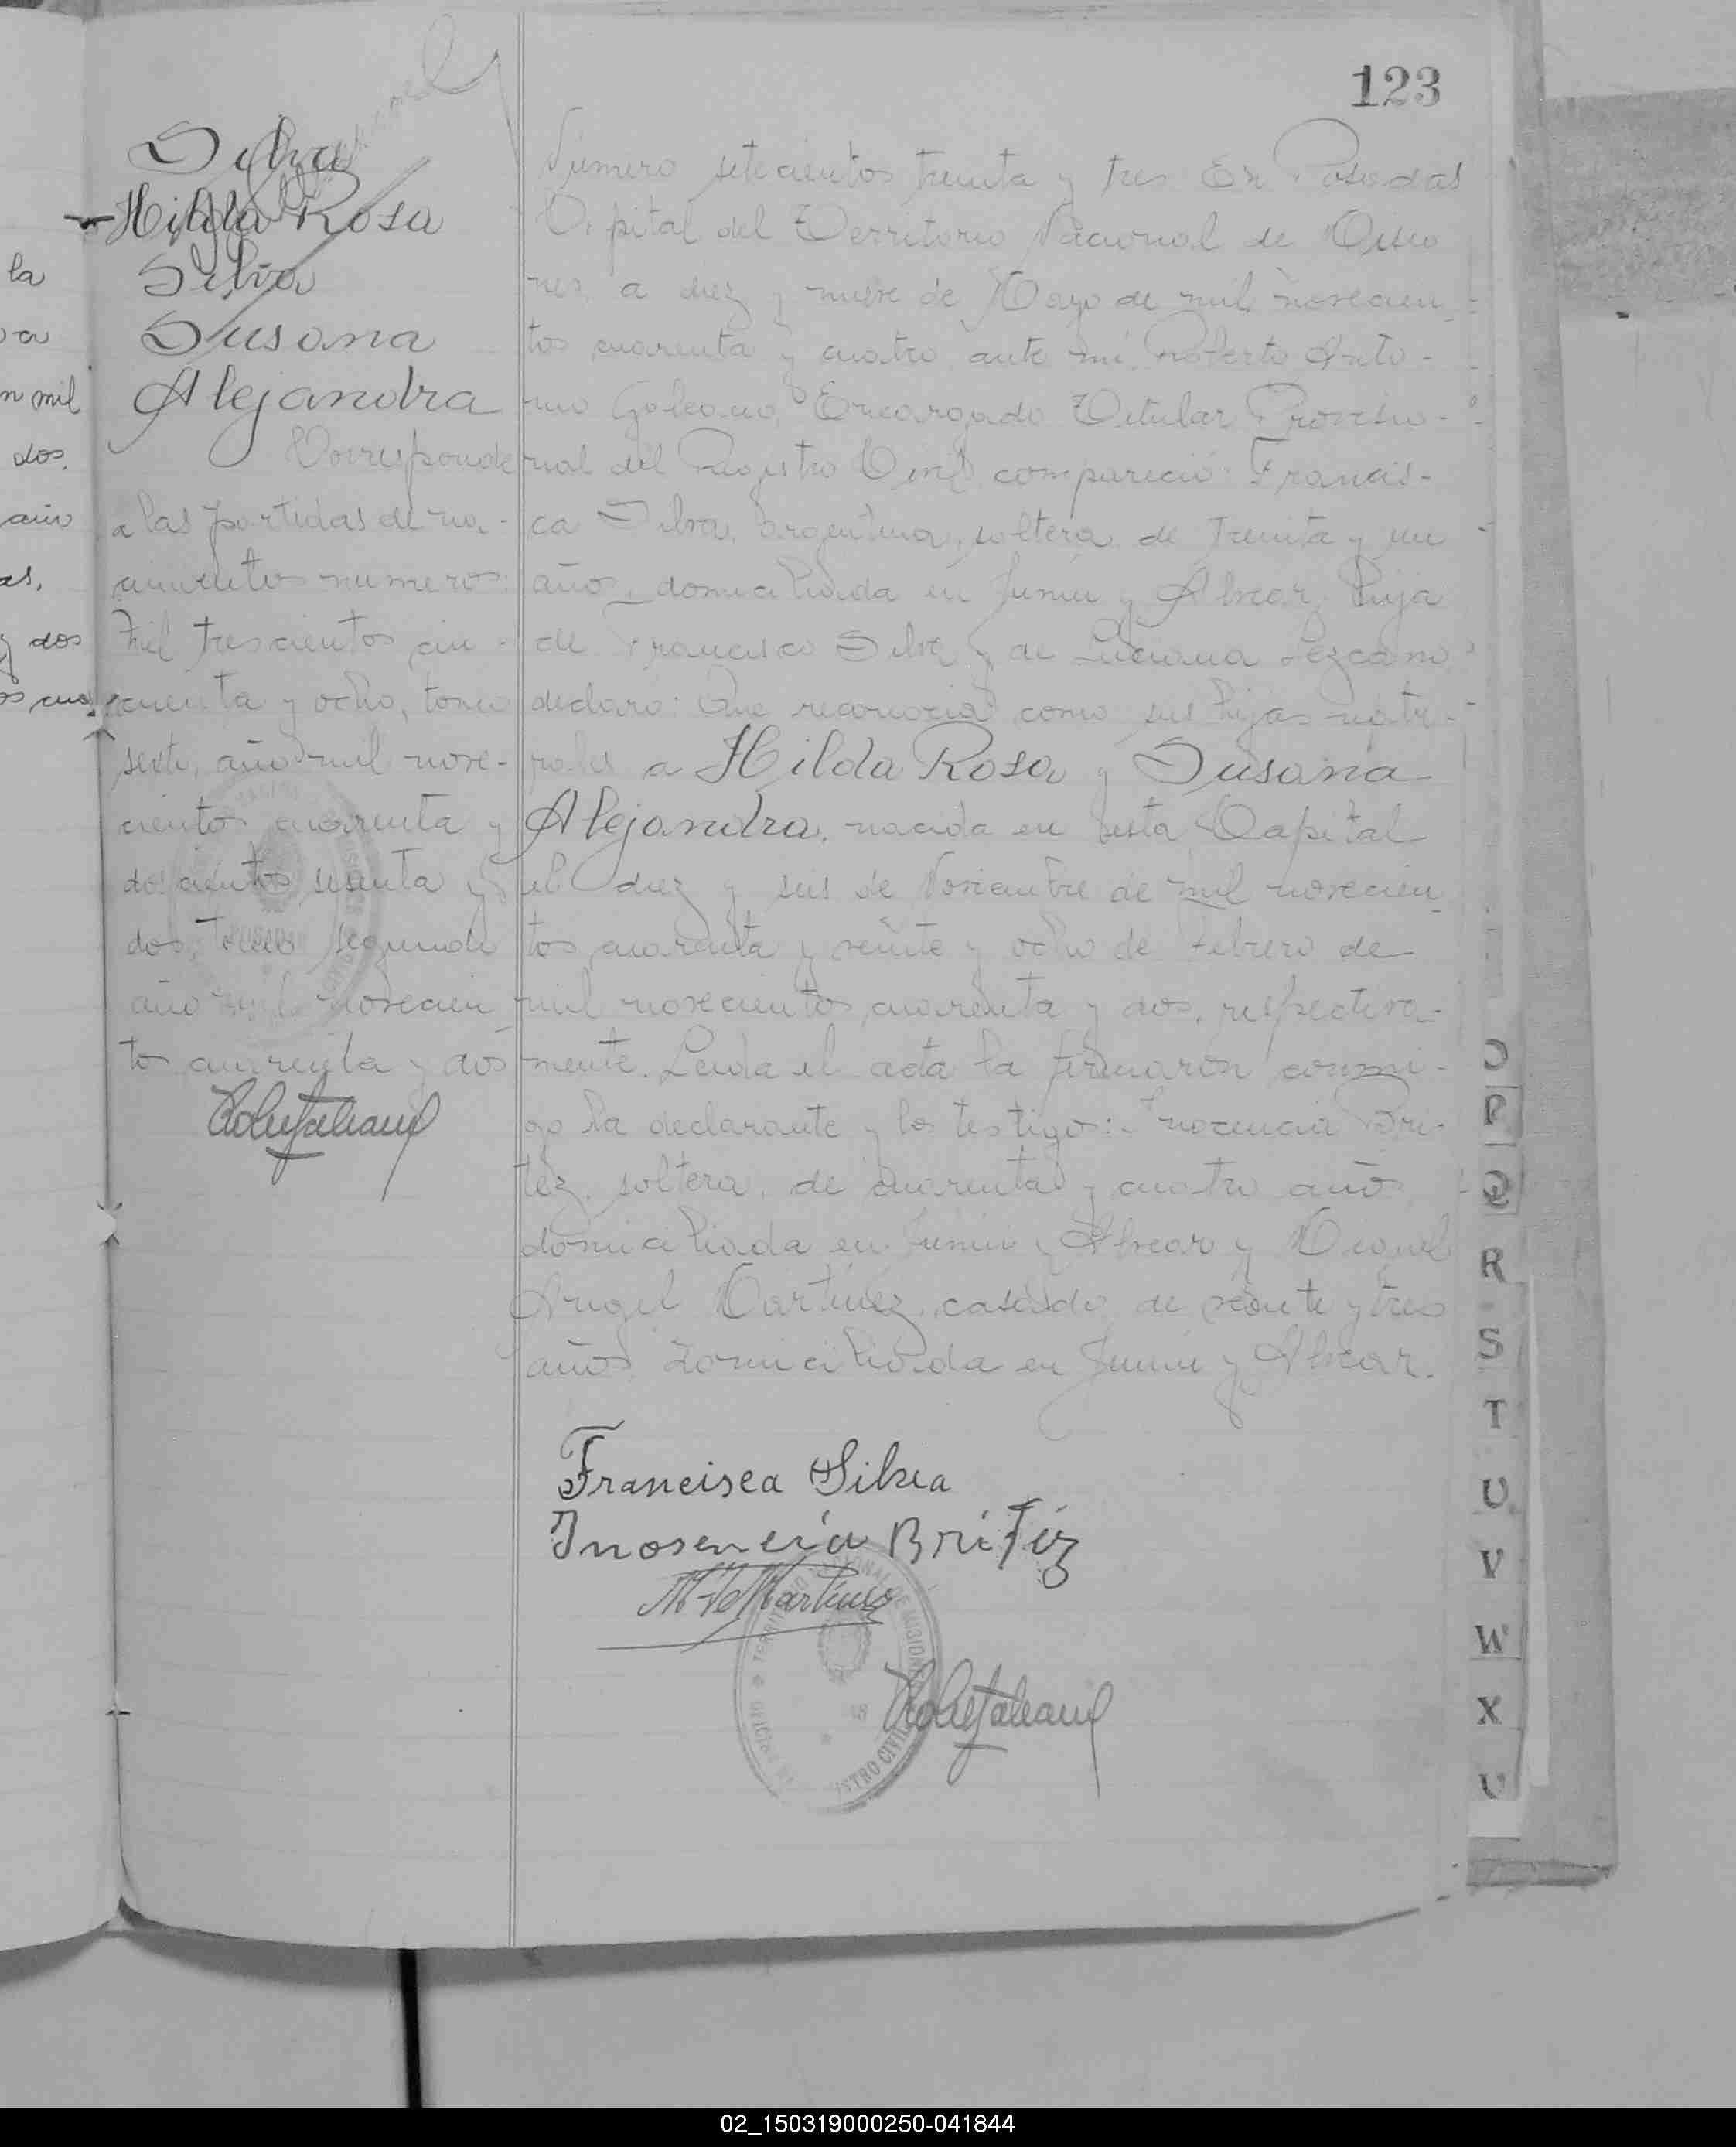 123
Silva
Hilda Rosa
Silva
Susana
Alejandra
Corresponde
a las partidas de na-
cimientos numeros:
mil trescientos cin-
cuenta y ocho, tomo
sexto, año mil nove-
cientos cuarenta y
doscientos sesenta y
dos, tomo segundo
año mil novecien
tos cuarenta y dos
Número setecientos treinta y tres En Posadas
Capital del Territorio Nacional de Misio
nes a diez y nueve de Mayo de mil novecien
tos cuarenta y cuatro, ante mi, Roberto Anto-
nio Galeano, Encargado Titular Provisio-
nal del Registro Civil compareció: Francis-
ca Silva, argentina, soltera de treinta y un
años, domiciliada en Junin y Alvear, hija
de Francisco Silva y de Luciana Lezcano
declaró: Que reconocia como sus hijas natu-
rales a Hilda Rosa y Susana
Alejandra, nacida en esta Capital
el diez y seis de Noviembre de mil novecien
tos cuarenta y veinte y ocho de Febrero de
mil novecientos cuarenta y dos, respectiva-
mente. Leida el acta la firmaron conmi-
go la declarante y los testigos: Inocencia Bri-
tez, soltera, de cuarenta y cuatro años
domiciliada en Junin y Alvear y Miguel
Angel Martinez, casado, de veinte y tres
años domiciliada en Junin y Alvear.
Francisca Silva
Inosencia Britez
M. A. Martinez
TERRITORIO NACIONAL DE MISIONES
REGISTRO CIVIL
la
n mil
dos.
año
as,
y dos
O
P
Q
R
S
T
U
V
W
X
02_150319000250-041844